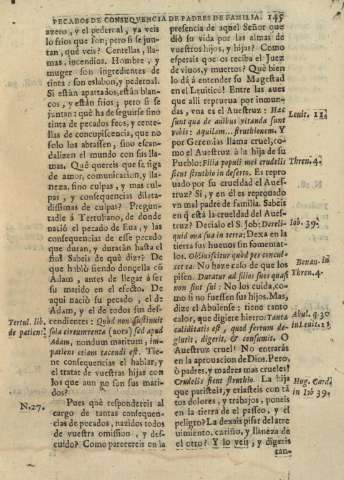 PECADOS DE CONSEQUENCIA DE PADRES DE FAMILIA. 145
azero, y el pedernal, ya veis
lo frios que son; pero si se jun-
tan, què veis? Centellas, lla-
mas, incendios. Hombre, y
muger son ingredientes de
tinta: son eslabon, y pedernal.
Si estàn apartados, estàn blan-
cos, y estàn frios; pero si se
juntan: què ha de seguirse sino
tinta de pecados feos, y cente-
llas de concupiscencia, que no
solo los abrassen, sino escan-
dalizen el mundo con sus lla-
mas. Què quereis que se siga
de amor, comunicacion, y lla-
neza, sino culpas, y mas cul-
pas, y consequencias dilata-
dissimas de culpas? Pregun-
tadle à Tertuliano, de donde
naciò el pecado de Eua, y las
consequencias de esse pecado
que duran, y duraràn hasta el
fin? Sabeis de què diz? De
que hablò siendo donçella cõ
Adam, antes de llegar à ser
su marido en el efecto. De
aqui naciò su pecado, el de
Adam, y el de todos sus des-
cendientes: Quòd non sustinuit
sola circumventa (aora) sed apud
Adam, nondum maritum; im-
patiens etiam tacendi est. Tie-
ne consequencias el hablar, y
el tratar de vuestras hijas con
los que aun no son sus mari-
dos?
Pues què respondereis al
cargo de tantas consequen-
cias de pecados, nazidos todos
de vuestra omission, y des-
cuido? Como parecereis en la
Tertul. lib.
de patient.
N. 27.
presencia de aquel Señor que
diò su vida por las almas de
vuestros hijos, y hijas? Como
esperais que os reciba el Juez
de vivos, y muertos? Què bien
lo dà à entender su Magestad
en el Leuitico! Entre las aues
que alli reprueua por inmun-
das, vna es el Auestruz: Hæc
sunt quæ de avibus vitanda sunt
vobis: Aquilam... struthionem. Y
por Geremias llama cruel, co-
mo el Auestruz à la hija de su
Pueblo: Filia populi mei crudelis
sicut struthio in deserto. Es repro-
uado por su crueldad el Aues-
truz? Si, y en èl es reprouado
vn mal padre de familia. Sabeis
en q̃ està la crueldad del Aues-
truz? Dezialo el S. Job: Dereli-
quit ova sua in terra; Dexa en la
tierra sus hueuos sin fomentar-
los. Obliviscitur quòd pes concul-
cet ea. No haze caso de que los
pisen. Duratur ad filios suos quasi
non sint sui: No los cuida, co-
mo si no fuessen sus hijos. Mas,
dize el Abulense: tiene tanto
calor, que digiere hierro: Tanta
caliditatis est, quod ferrum de-
glutit, digerit, & consumit. O
Auestruz cruel! No entraràs
en la aprouacion de Dios. Pero,
ò padres, y madres mas crueles!
Crudelis sicut struthio. La hija
que paristeis, y criasteis con tã-
tos dolores, y trabajos, poneis
en la tierra de el passeo, y el
peligro? La dexais pisar del atre-
uimiento, cariño, y llaneza de
el otro? Y lo veis, y digeris
tan-
Leuit. 11.
Thren. 4.
Iob. 39.
Thren. 4.
Abul. q. 30
in Leuit. 11
Hug. Card.
in Iob 39.